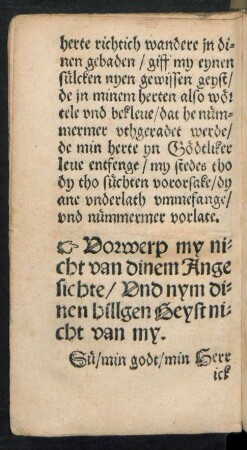 herte richtich wandere jn di⸗
nen gebaden / giff my eynen
sülcken nyen gewissen geyst /
de jn minem herten also wör
tele vnd bekleue / dat he nüm⸗
mermer vthgeradet werde /
de min herte yn Gödtliker
leue entfenge / my stedes tho
dy tho süchten vororsake / dy
ane vnderlath vmmefange /
vnd nümmermer vorlate.
☞ Vorwerp my ni⸗
cht van dinem Ange
sichte / Vnd nym di⸗
nen hilligen Geyst ni⸗
cht van my.
Sü / min godt / min Herr
ick